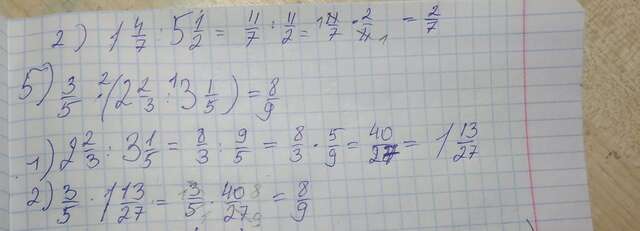 2) 1 4/7 : 5 1/2 = 11/7 : 11/2 = 11/7 · 2/11 = 2/7
5) 3/5 · (2 2/3 : 3 1/5) = 8/9
1) 2 2/3 : 3 1/5 = 8/3 : 9/5 = 8/3 · 5/9 = 40/27 = 1 13/27
2) 3/5 · 1 13/27 = 3/5 · 40/27 = 8/9